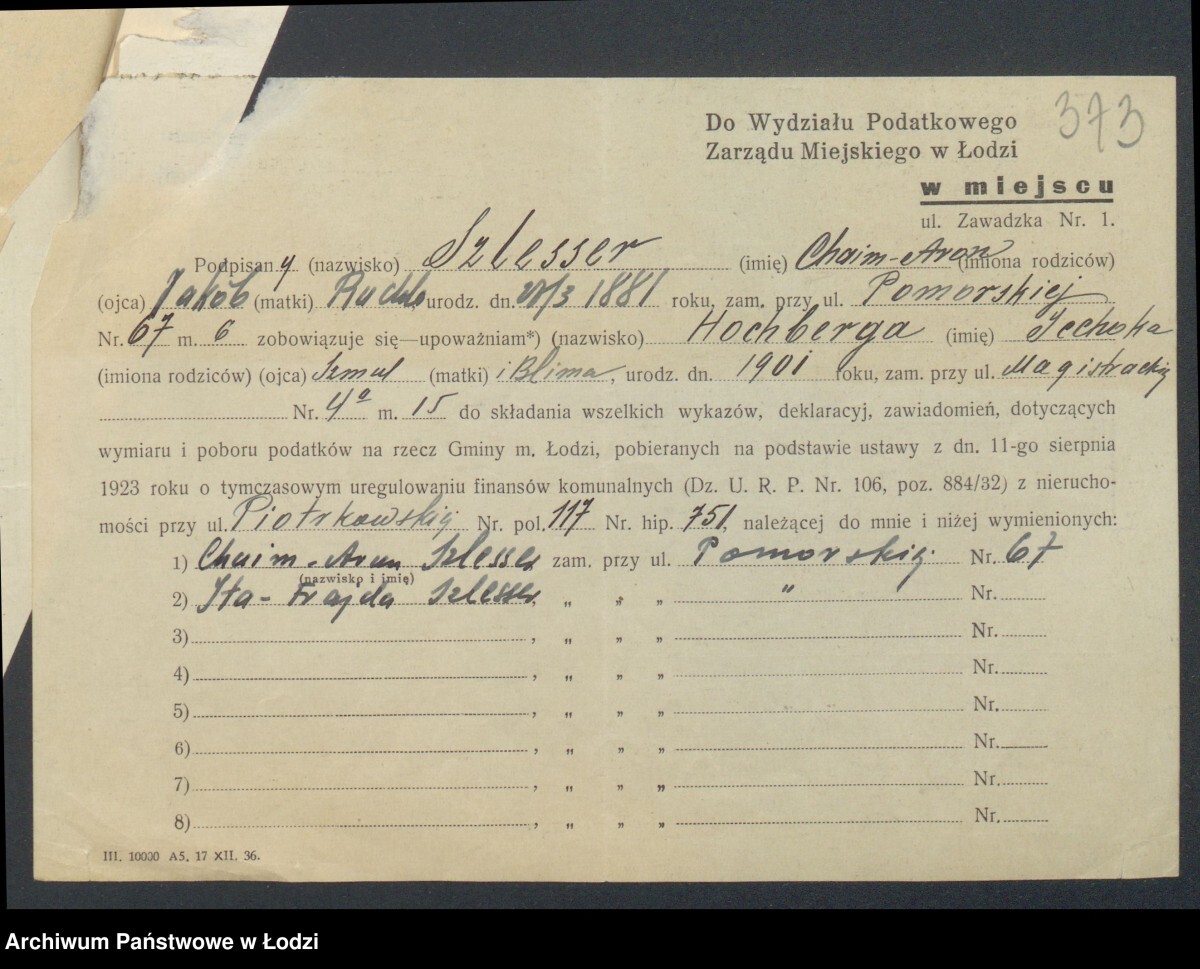 373
Do Wydziału Podatkowego
Zarządu Miejskiego w Łodzi
w miejscu
ul. Zawadzka Nr. 1.
Podpisany (nazwisko) Szlesser (imię) Chaim-Aron (imiona rodziców)
(ojca) Jakób (matki) urodz. dn. /3 1881 roku, zam. przy ul. Pomorskiej
Nr. 67 m. 6 zobowiązuje się—upoważniam*) (nazwisko) Hochberga (imię)
(imiona rodziców) (ojca) Szmul (matki) i Blima, urodz. dn. 1901 roku, zam. przy ul. Magistrackiej
Nr. 4a m. 15 do składania wszelkich wykazów, deklaracyj, zawiadomień, dotyczących
wymiaru i poboru podatków na rzecz Gminy m. Łodzi, pobieranych na podstawie ustawy z dn. 11-go sierpnia
1923 roku o tymczasowym uregulowaniu finansów komunalnych (Dz. U. R. P. Nr. 106, poz. 884/32) z nierucho-
mości przy ul. Piotrkowskiej Nr. pol. 117 Nr. hip. 751, należącej do mnie i niżej wymienionych:
1) Chaim-Aron Szlesser zam. przy ul. Pomorskiej Nr. 67
(nazwisko i imię)
2) Ita-Frajda Szlesser, „ „ „ " Nr.
3) , „ „ „ Nr.
4) , „ „ „ Nr.
5) , „ „ „ Nr.
6) , „ „ „ Nr.
7) , „ „ „ Nr.
8) , „ „ „ Nr.
III. 10000 A5. 17 XII. 36.
Archiwum Państwowe w Łodzi